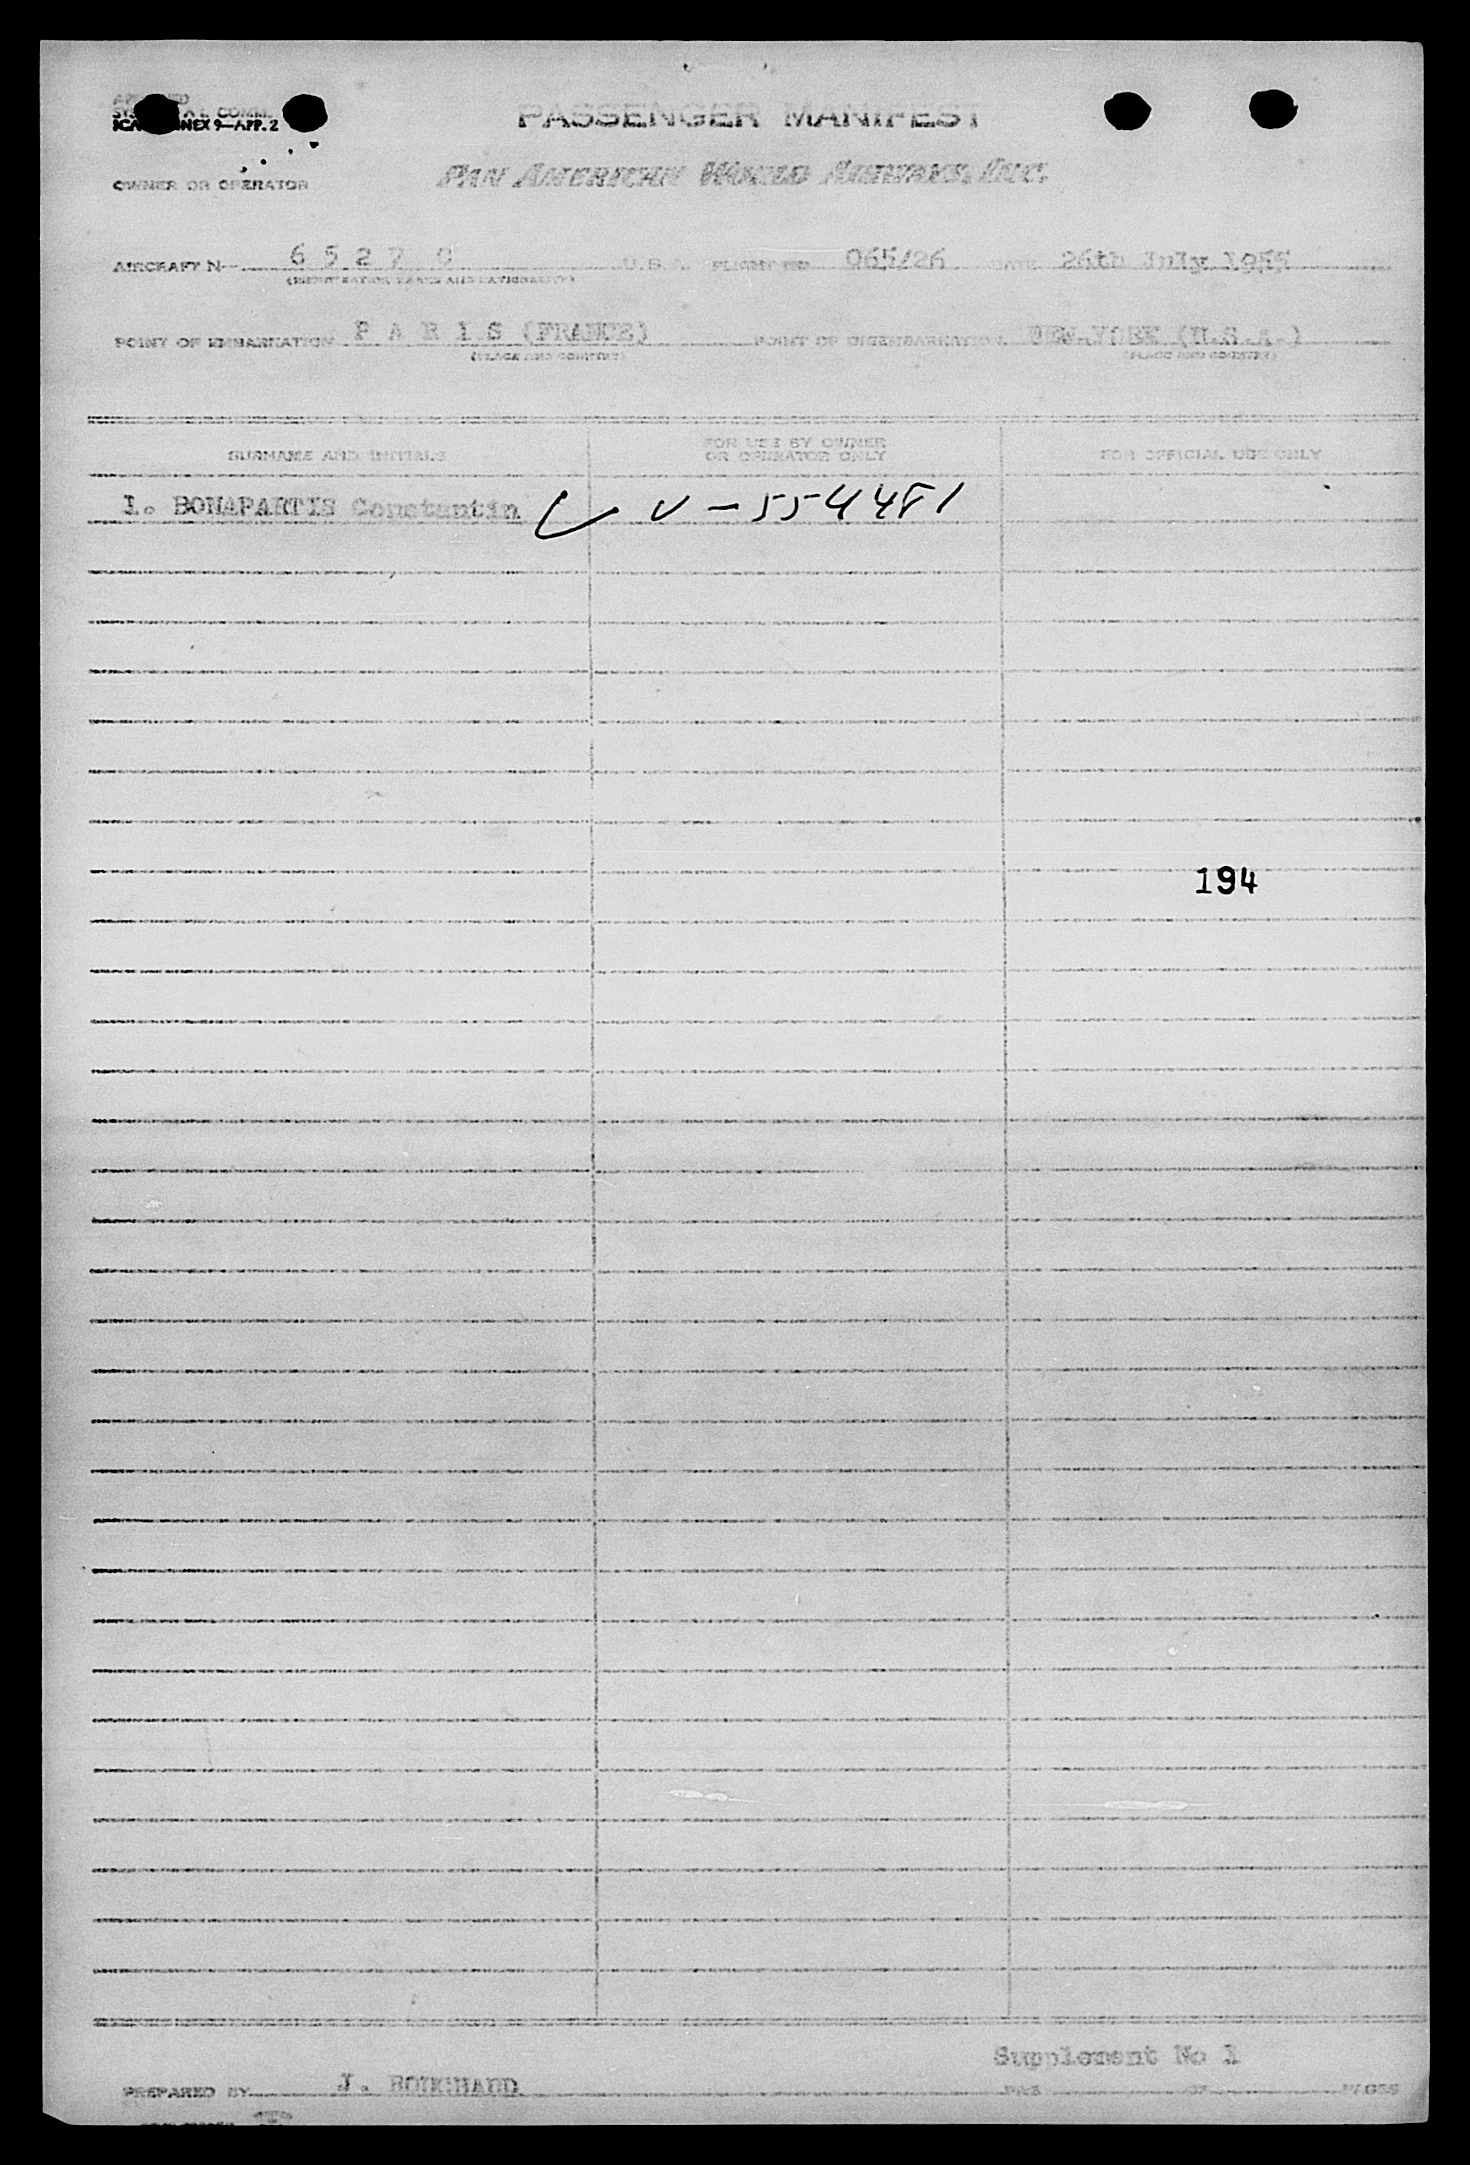 ICAO ANNEX 9—APP. 2
PASSENGER MANIFEST
OWNER OR OPERATOR PAN AMERICAN WORLD AIRWAYS, INC.
AIRCRAFT N- 6 5 2 7 0 U.S.A. FLIGHT NO 065/26 DATE 26th July 1955
(REGISTRATION MARKS AND NATIONALITY)
POINT OF EMBARKATION P A R I S (FRANCE) POINT OF DISEMBARKATION NEW-YORK (U.S.A.)
(PLACE AND COUNTRY) (PLACE AND COUNTRY)
SURNAME AND INITIALS FOR USE BY OWNER OR OPERATOR ONLY FOR OFFICIAL USE ONLY
1. BONAPARTIS Constantin V-554481
194
Supplement No 1
PREPARED BY J. PAGE OF PAGES